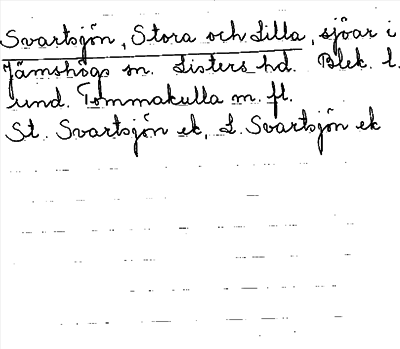 Svartsjön, Stora och Lilla, sjöar i
Jämshögs sn. Listers hd. Blek. l.
und. Tommakulla m. fl.
St. Svartsjön ek, L. Svartsjön ek